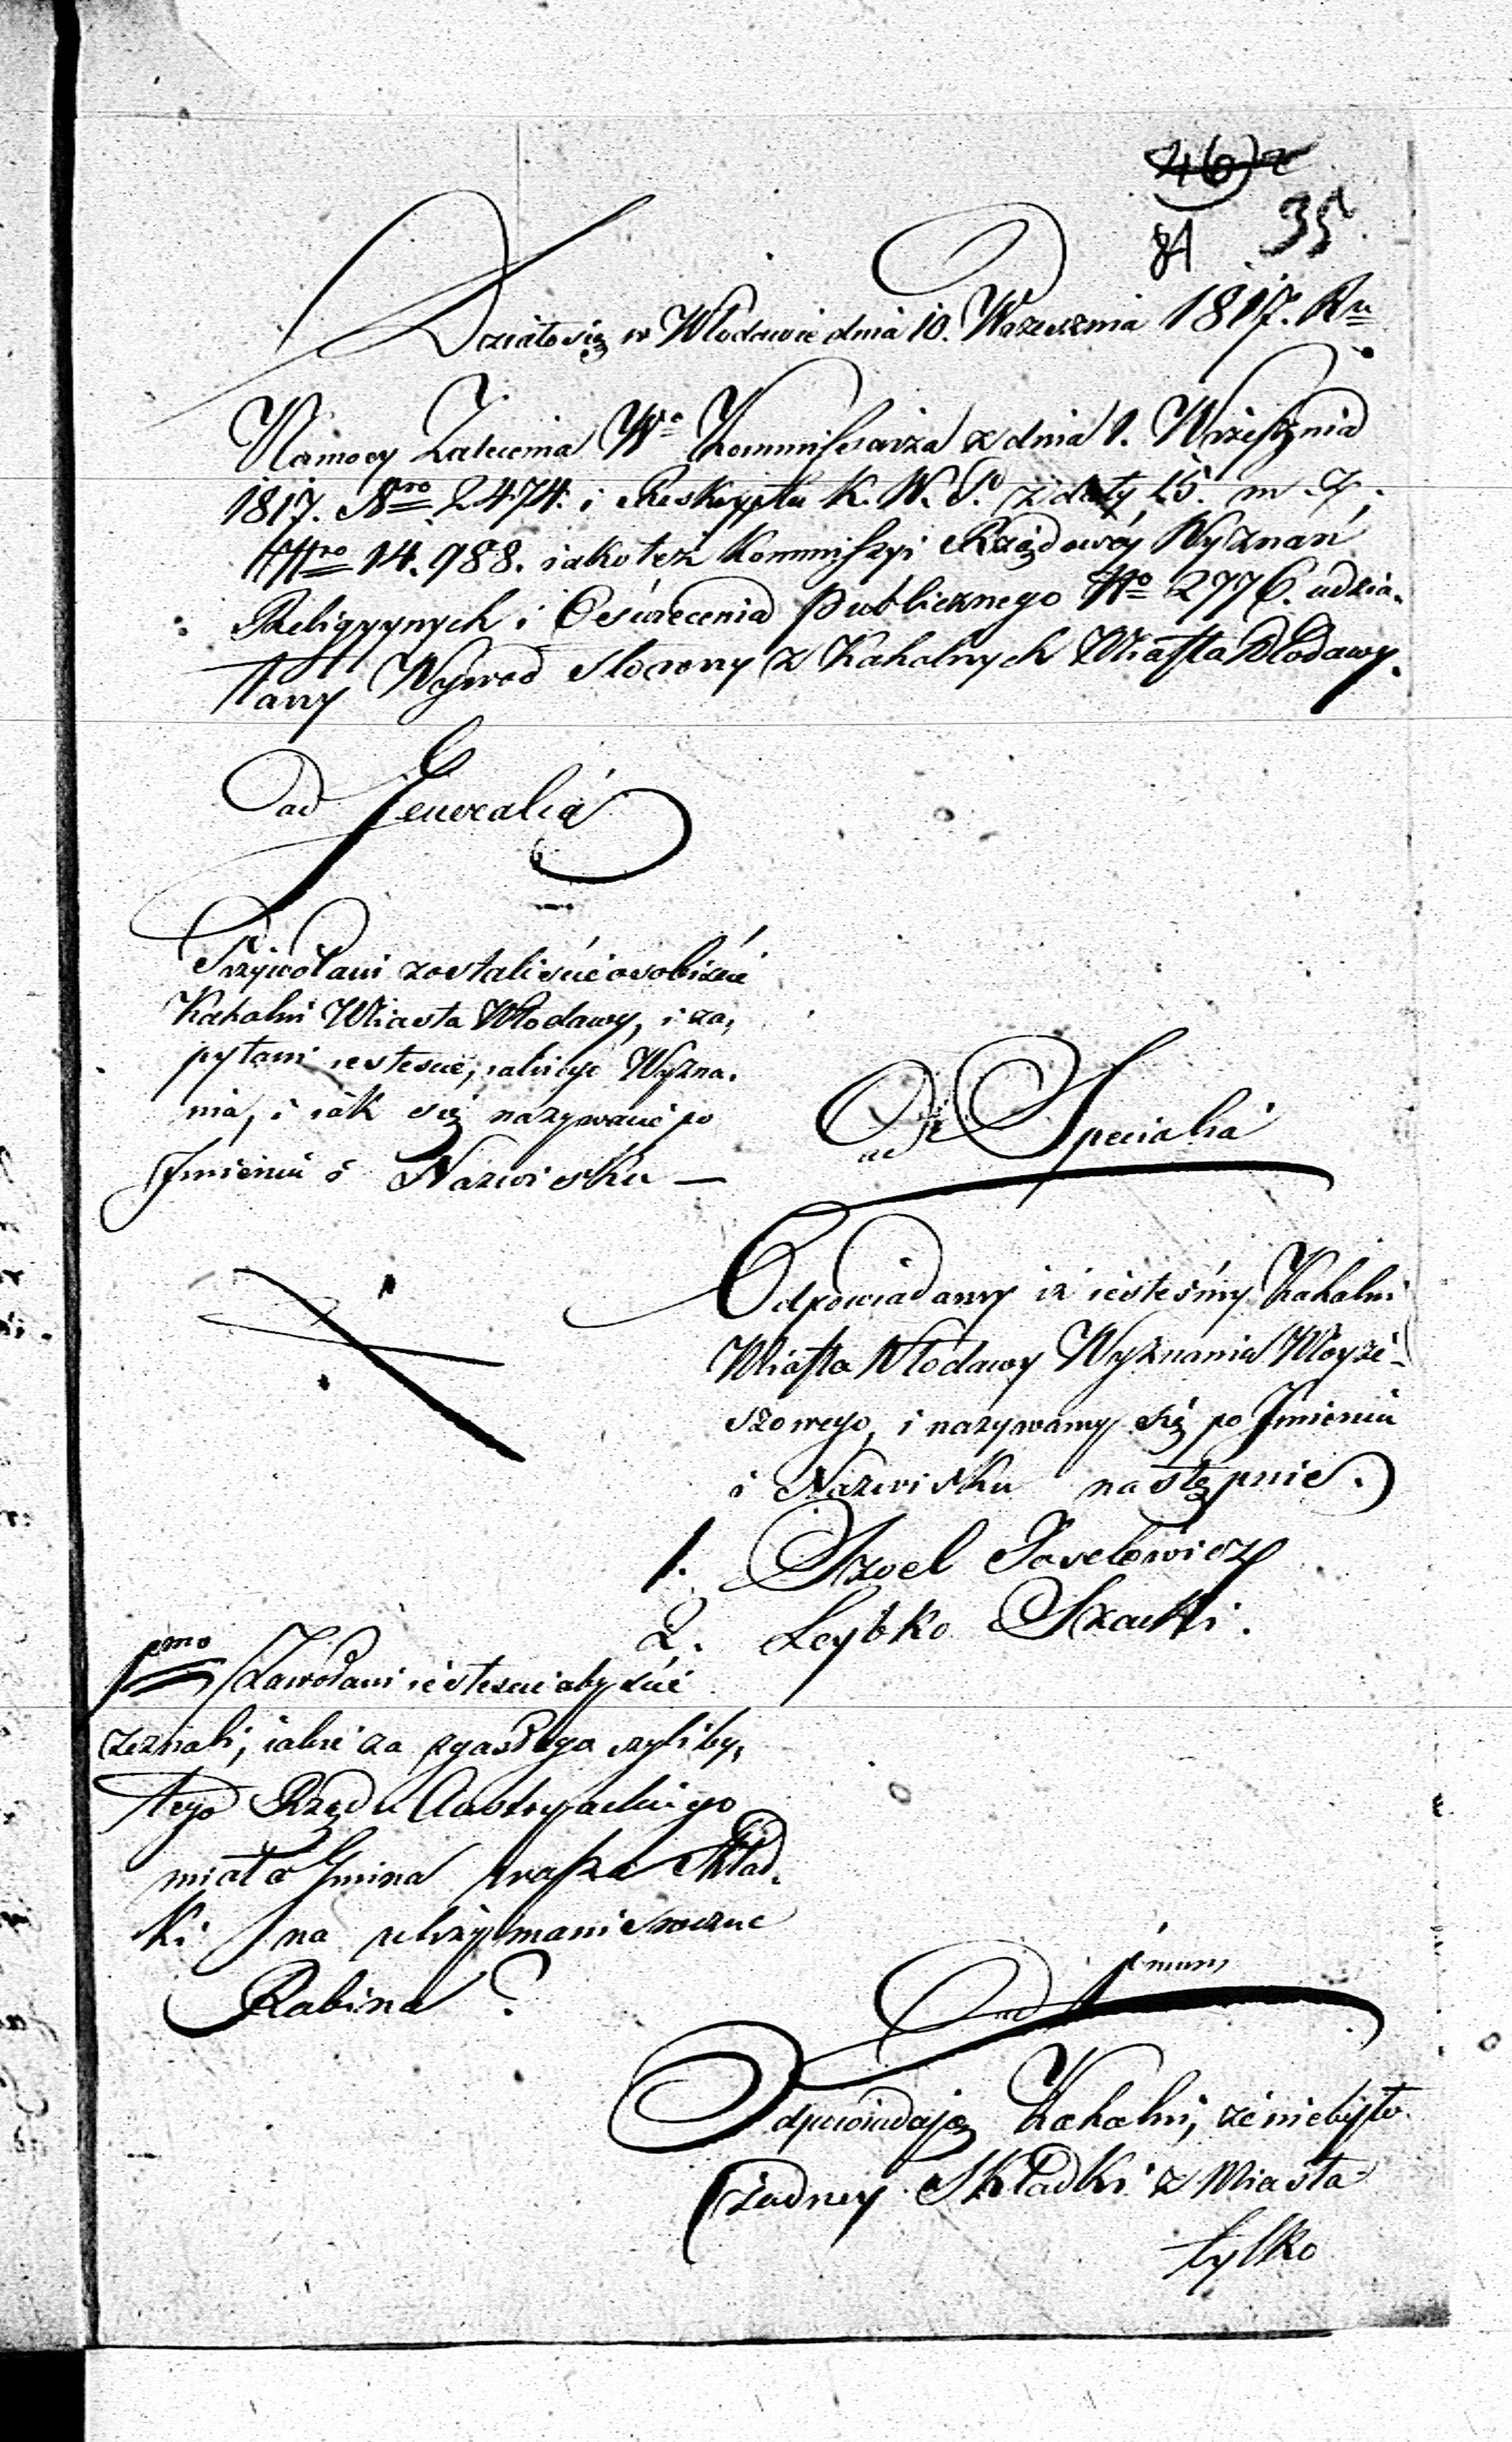 46
81 35
Działo się w Włodawie dnia 10. Wrzesznia 1817. Ru
Na mocy Zalecenia Wo Kommissarza z dnia 1. Wrzesznia
1817. Nro 2474. i Reskryptu K. W. P. z daty 15. m.
Nro 14.988. iako też Kommissyi Rządowéy Wyznań
Religyynych i Oświecenia Publicznego No 2776. udzia-
łany Wywod Słowny z Kahalnych Miasta Włodawy.
ad Generalia
Przywołani zostaliście osobiście
Kahalni Miasta Włodawy, i za,
pytani iesteście, iakiego Wyzna-
nia, i iak się nazywacie po
Imieniu i Nazwisku —
ad Specialia
Odpowiadamy iż iesteśmy Kahalni
Miasta Włodawy Wyznania Moyże-
szowego, i nazywamy się po Imieniu
i Nazwisku następnie.
1. Szoel Joselowicz
2. Leybko Szacki.
1mo Zawołani iesteście abyście
zeznali, iakie za zgasłego czyli by,
łego Rządu Austryackiego
miała Gmina wasza Skład-
ki na utrzymanie roczne
Rabina?
ad 1mum
Odpowiadają Kahalni, że nie było
żadney Składki z Miasta
tylko